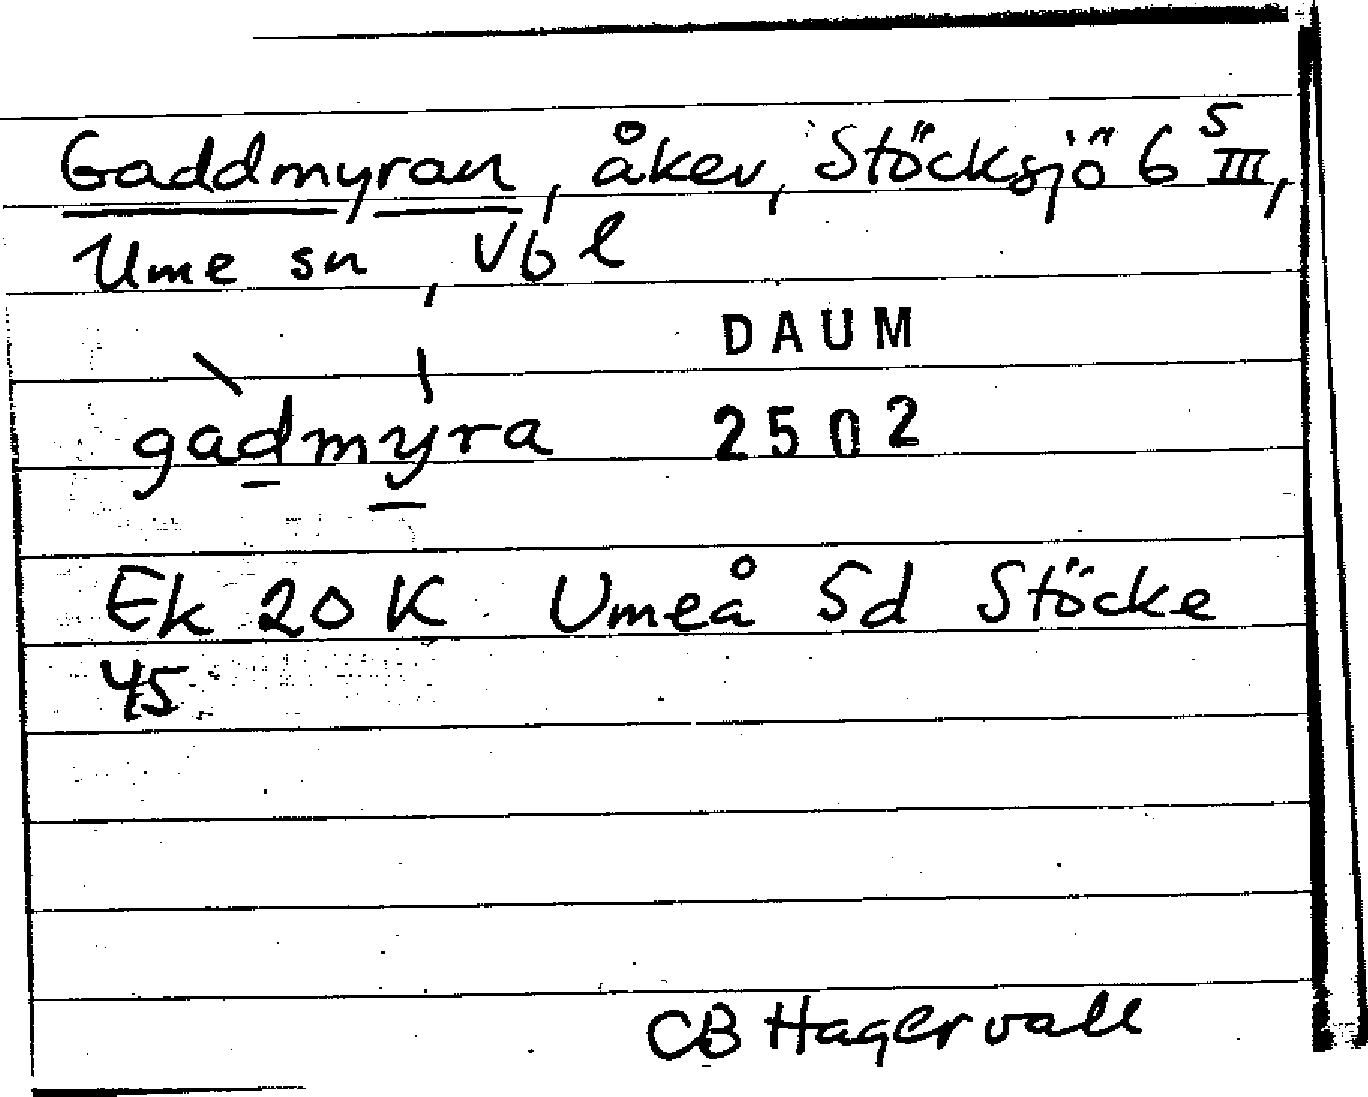 Gaddmyran, åker, Stöcksjö 6 5 III,
Ume sn, Vb l
DAUM
gàdmy̍ra 2502
Ek 20 K Umeå Sd Stöcke
45
CB Hagervall